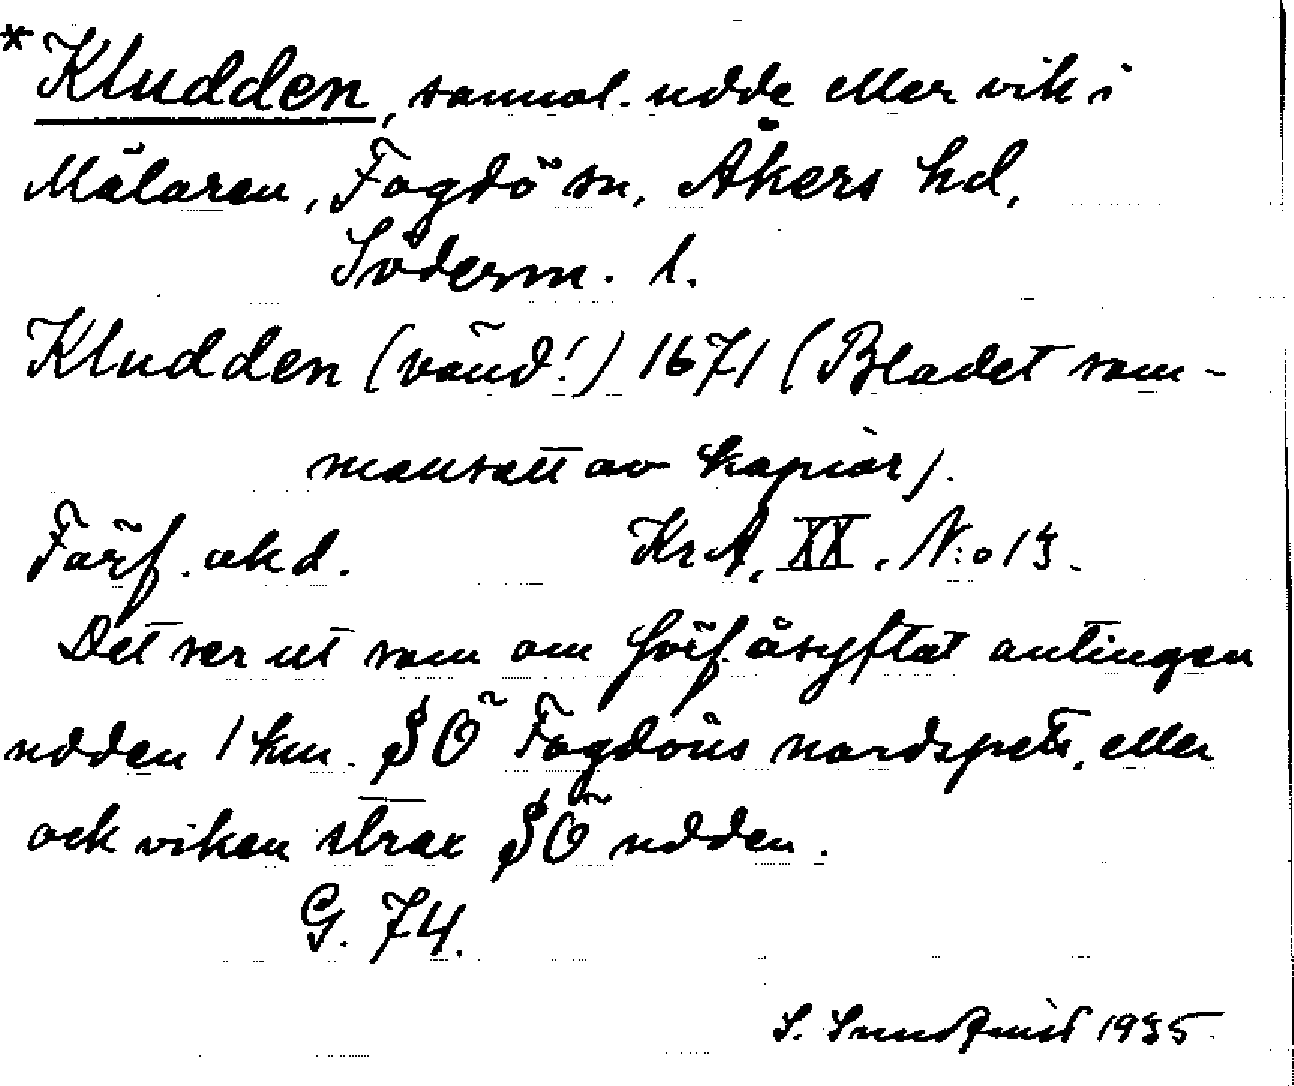 *Kludden, sannol. udde eller vik i
Mälaren, Fogdö sn, Åkers hd,
Söderm. l.
Kludden (vänd!) 1671 (Bladet sam-
mansatt av kopior).
Förf. okd. KrA, XX, N:o 13.
Det ser ut som om förf. åsyftat antingen
udden 1 km. SÖ Fogdöns nordspets, eller
ock viken strax SÖ udden.
G. 74.
S. Sundquist 1935